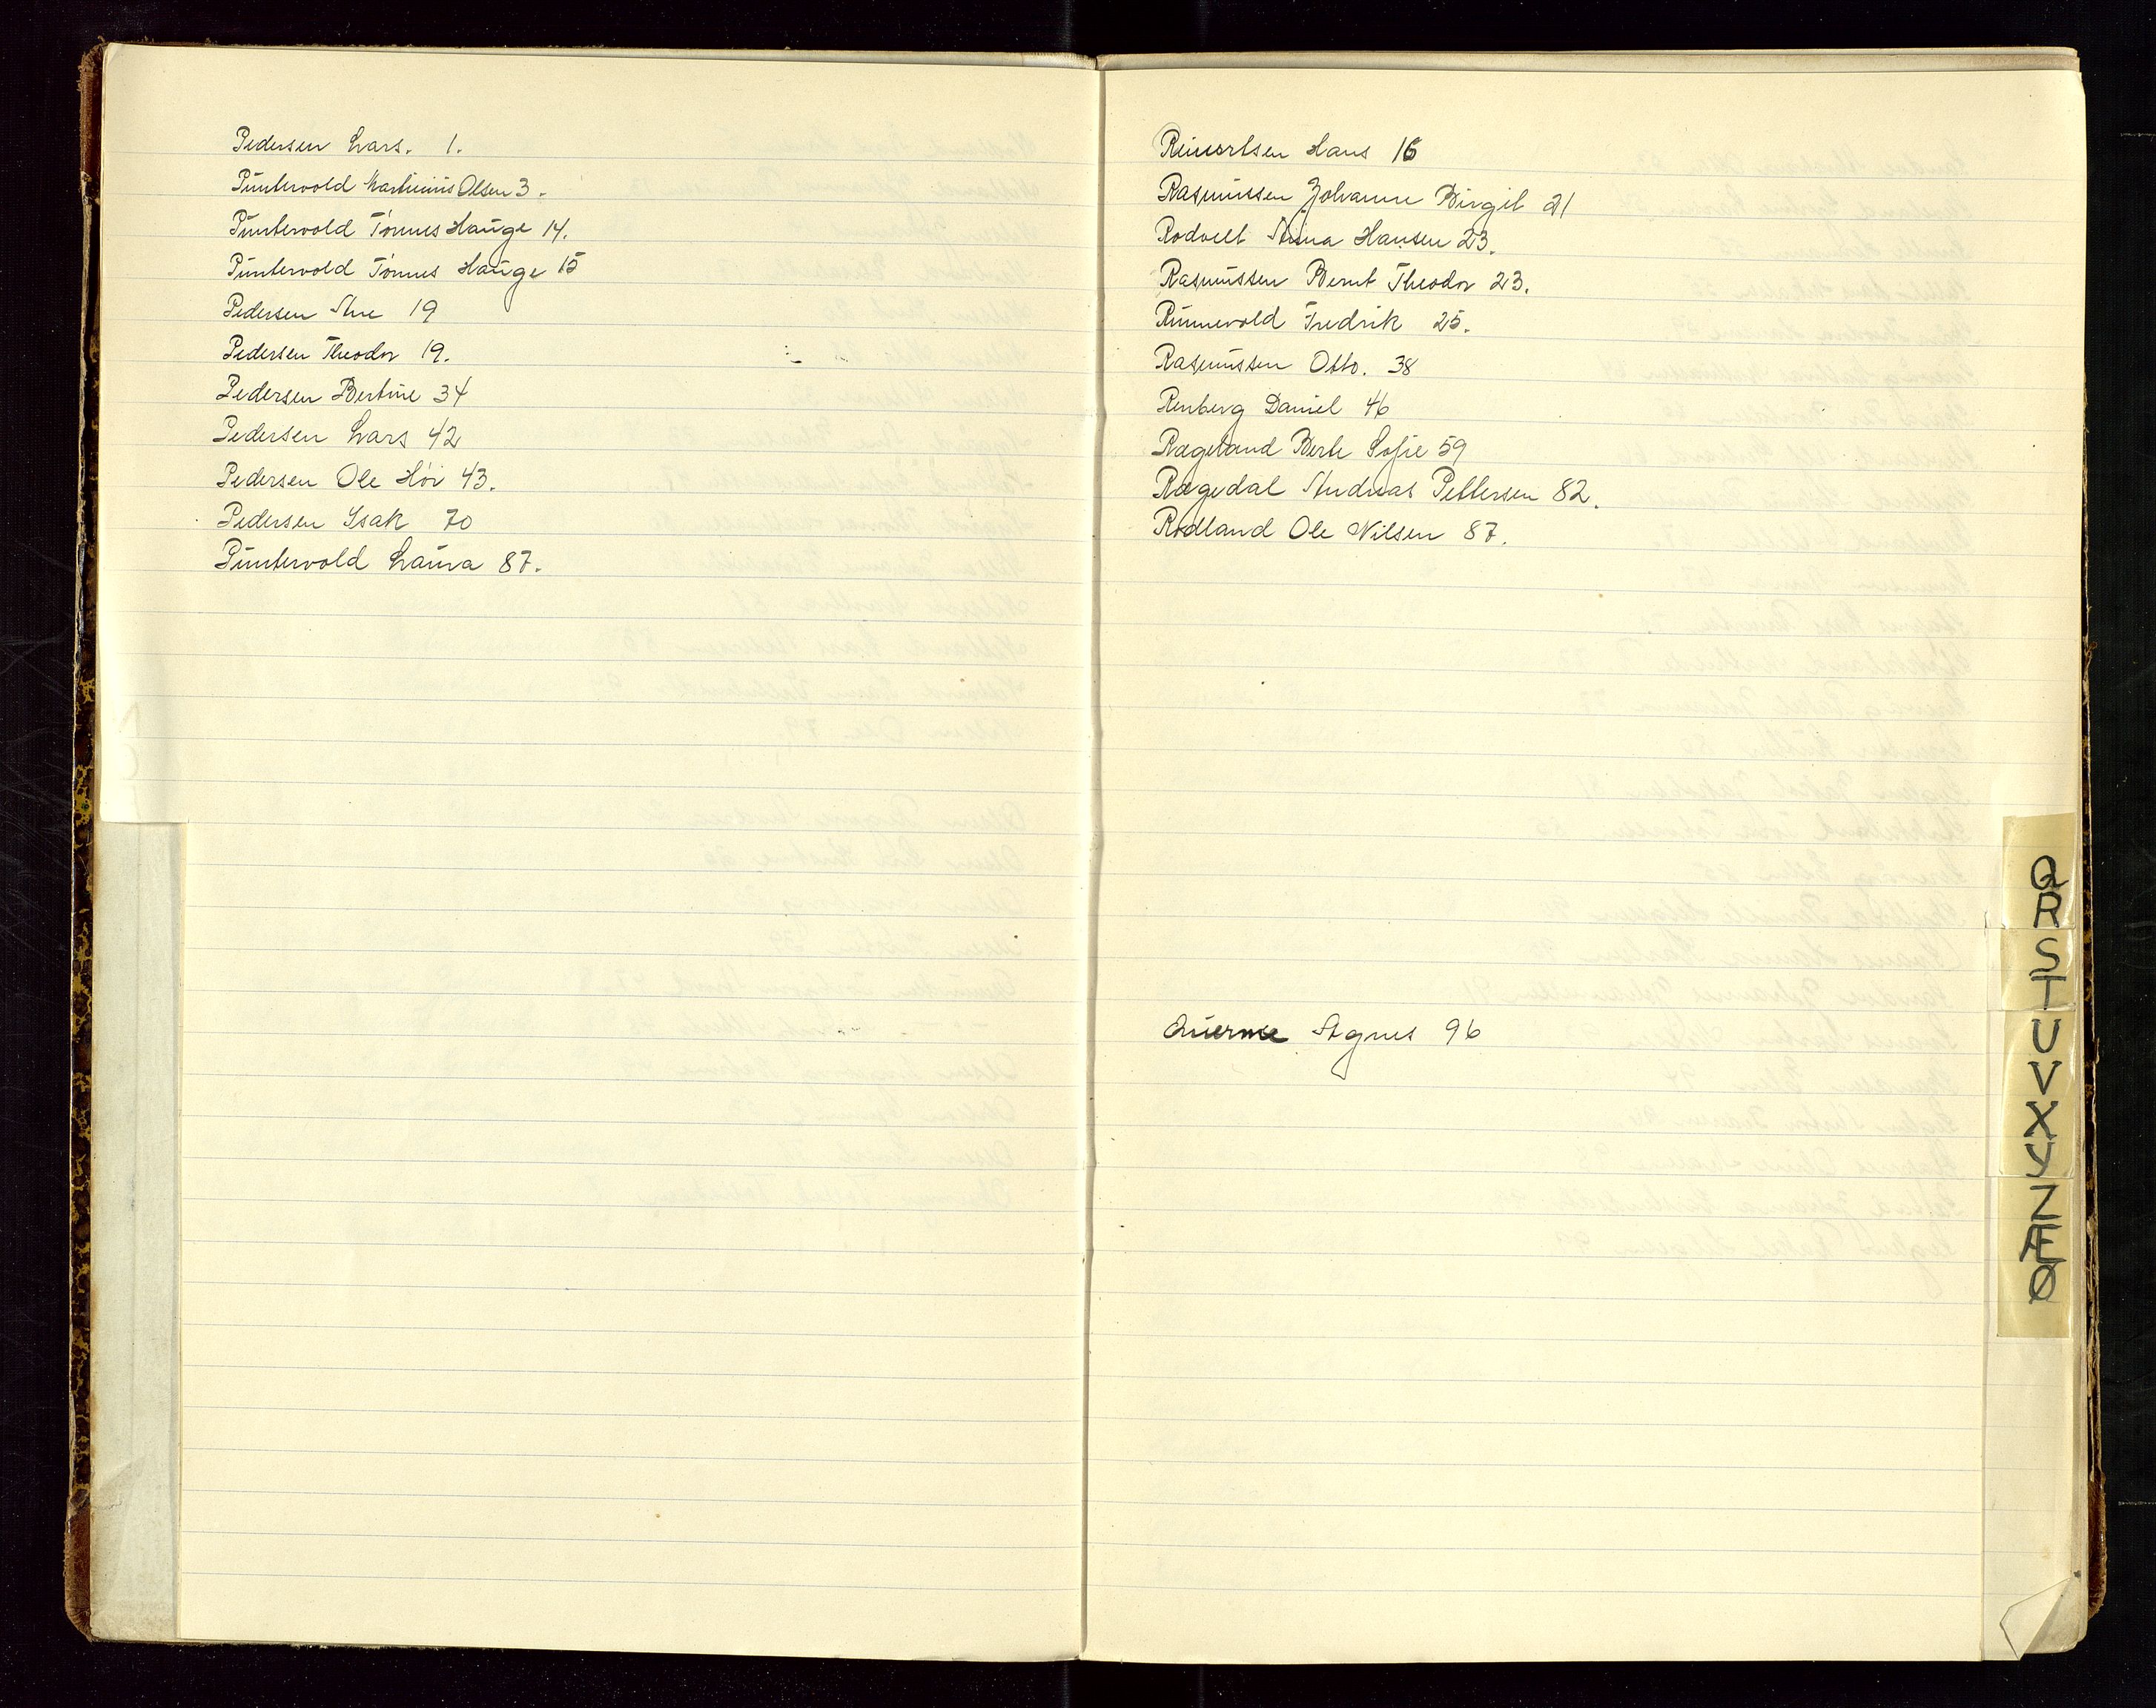 Pedersen Lars. 1.
Puntervold Martinius Olsen 3.
Puntervold Tönnes Hauge 14.
Puntervold Tönnes Hauge 15
Pedersen Ane 19
Pedersen Theodor 19.
Pedersen Bertine 34
Pedersen Lars 42
Pedersen Ole Höi 43.
Pedersen Isak 70
Puntervold Laura 87.
Reinertsen Hans 16
Rasmussen Johanne Birgit 21
Rodvelt Anna Hansen 23.
Rasmussen Bernt Theodor 23.
Runnevold Fredrik 25.
Rasmussen Otto. 38
Renberg Daniel 46
Rægeland Berte Sofie 59
Rægedal Andreas Pettersen 82.
Rodland Ole Nilsen 87.
Agnes 96
Q
R
S
T
U
V
X
Y
Z
Æ
Ø